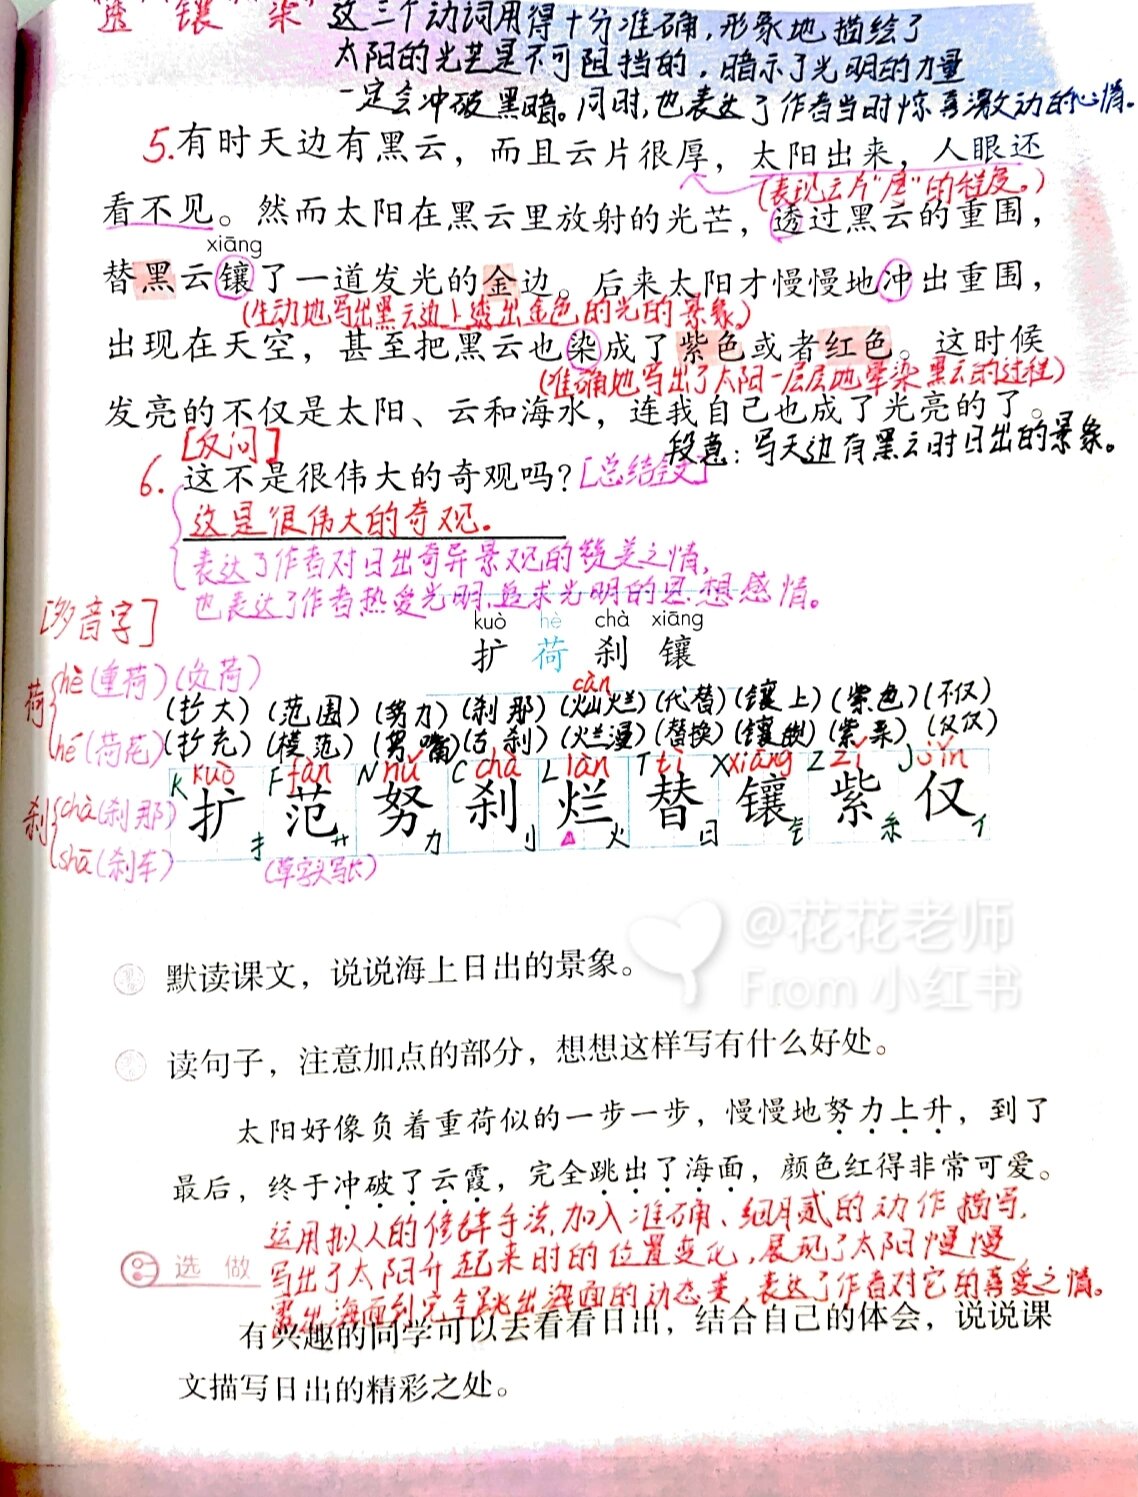 “透”“镶”“染”这三个动词用得十分准确,形象地描绘了
太阳的光芒是不可阻挡的,暗示了光明的力量
一定会冲破黑暗。同时,也表达了作者当时惊喜激动的心情。
5.有时天边有黑云，而且云片很厚，太阳出来，人眼还
(表现云片“厚”的程度。)
看不见。然而太阳在黑云里放射的光芒，透过黑云的重围，
xiāng
替黑云镶了一道发光的金边。后来太阳才慢慢地冲出重围，
(生动地写出黑云边上透出金色的光的景象)
出现在天空，甚至把黑云也染成了紫色或者红色。这时候
(准确地写出了太阳一层层地晕染黑云的过程)
发亮的不仅是太阳、云和海水，连我自己也成了光亮的了。
[反问]
段意:写天边有黑云时日出的景象。
6.这不是很伟大的奇观吗？[总结全文]
这是很伟大的奇观。
表达了作者对日出奇异景观的赞美之情,
也表达了作者热爱光明,追求光明的思想感情。
[多音字]
kuò hè chà xiāng
扩 荷 刹 镶
荷 hè(重荷)(负荷)
hé(荷花)
càn
(扩大)(范围)(努力)(刹那)(灿烂)(代替)(镶上)(紫色)(不仅)
(扩充)(模范)(努嘴)(古刹)(烂漫)(替换)(镶嵌)(紫菜)(仅仅)
K kuò F fàn N nǔ C chà L làn T tì X xiāng Z zǐ J jǐn
扩 范 努 刹 烂 替 镶 紫 仅
扌 艹 力 刂 火 日 钅 糸 亻
刹 chà(刹那)
shā(刹车)
(草字头写长)
@花花老师
From 小红书
默读课文，说说海上日出的景象。
读句子，注意加点的部分，想想这样写有什么好处。
太阳好像负着重荷似的一步一步，慢慢地努力上升，到了
最后，终于冲破了云霞，完全跳出了海面，颜色红得非常可爱。
运用拟人的修辞手法,加入准确、细腻的动作描写,
选做
写出了太阳升起来时的位置变化,展现了太阳慢慢
露出海面到完全跳出海面的动态美,表达了作者对它的喜爱之情。
有兴趣的同学可以去看看日出，结合自己的体会，说说课
文描写日出的精彩之处。